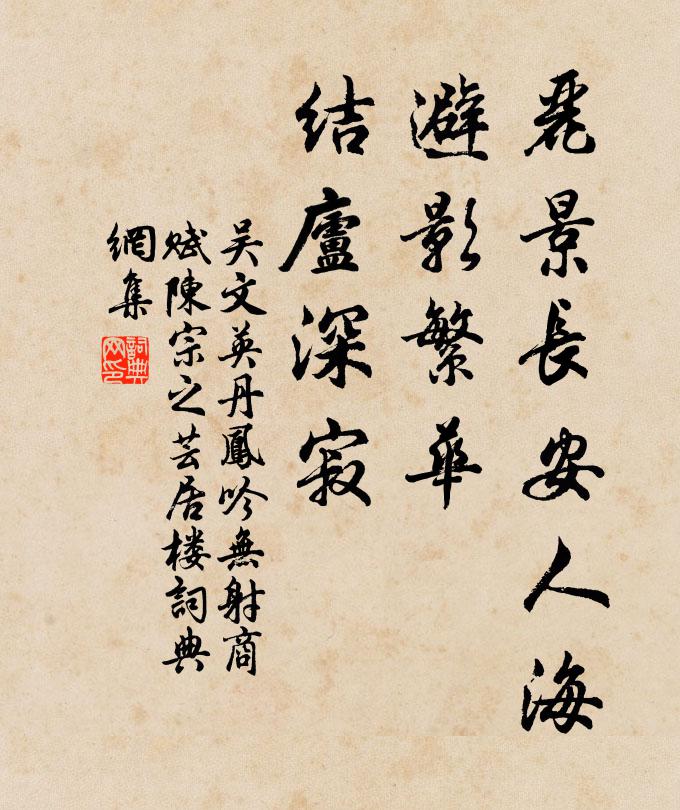 麗景長安人海
避影繁華
結廬深寂
吴文英丹鳳吟無射商
賦陳宗之芸居楼詞典
網集
詞典
网印